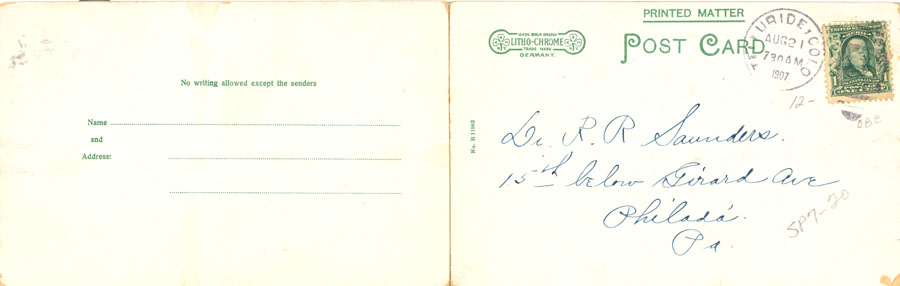 No writing allowed except the senders
Name
and
Address:
PRINTED MATTER
LITHO-CHROME
TRADE MARK
GERMANY.
POST CARD
TELLURIDE, COLO
AUG 21
730 AM
1907
1
12-
OBE
No. B 11968
Dr. R. R Saunders.
15th below Girard Ave
Philada.
Pa.
SP7-20